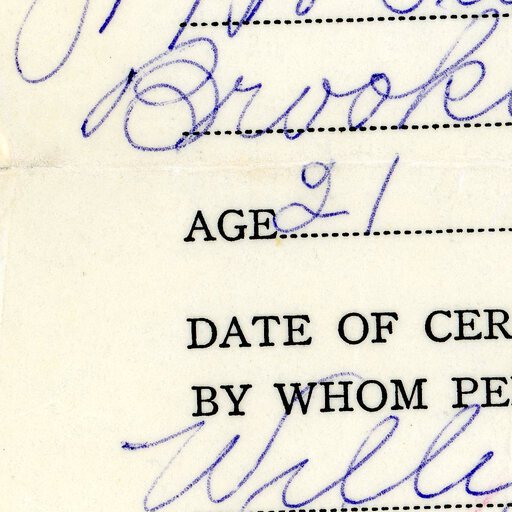 Brook
AGE 21
DATE OF CER
BY WHOM PE
Willi